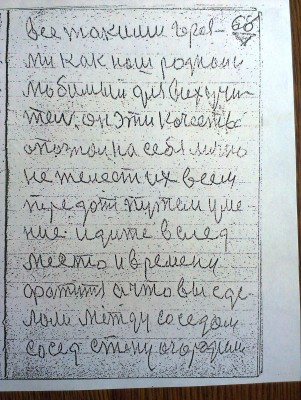 68
все такими героя-
ми как наш родной
любимый для всех учи-
тель. он эти качества
опознал на себя лично
не телест их всем
передать путем уме
ние идите в след
место и времену
братья а что вы сде-
лали между соседом
сосед стену огородили